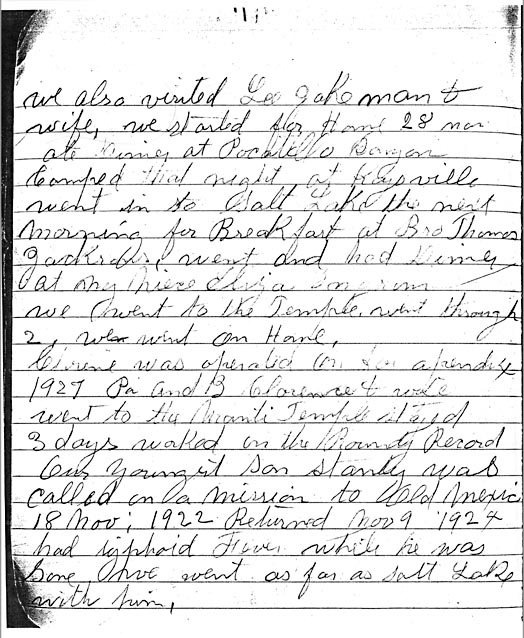 we also visited Lee Jakeman &
wife, we started for Home 28 nov
ate Diner at Pocatello
Camped that night at Kaysville
went in to Salt Lake the next
morning for Breakfast at Bro Thomas
Jacksons, went and had Diner
at my Niece Eliza Ingram
we went to the Temple went through
2, we went on Home,
was operated on for apendix
1927 Pa and B Clarence & wife
went to the Manti Temple stayed
3 days worked on the Roundy Record
Our Youngest Son Stanly was
called on a mission to Old Mexic
18 Nov; 1922 Returned Nov 9 1924
had typhoid Fever while he was
Gone, we went as far as Salt Lake
with him,